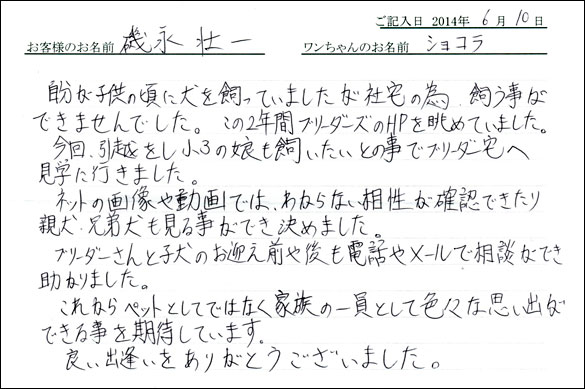 ご記入日 2014年 6月 10日
お客様のお名前 磯永 壮一 ワンちゃんのお名前 ショコラ
自分が子供の頃に犬を飼っていましたが社宅の為、飼う事が
できませんでした。この2年間ブリーダーズのHPを眺めていました。
今回、引越をし小3の娘も飼いたいとの事でブリーダー宅へ
見学に行きました。
ネットの画像や動画では、わからない相性が確認できたり
親犬・兄弟犬も見る事ができ決めました。
ブリーダーさんと子犬のお迎え前や後も電話やメールで相談ができ
助かりました。
これからペットとしてではなく家族の一員として色々な思い出が
できる事を期待しています。
良い出逢いをありがとうございました。